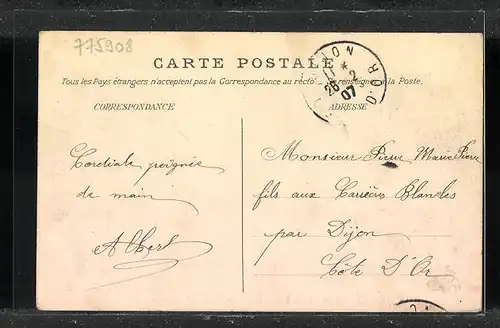 775908
CARTE POSTALE
Tous les Pays étrangers n'acceptent pas la Correspondance au recto. renseigner à la Poste.
CORRESPONDANCE
ADRESSE
26 - 2
07
Cordiale poignée
de main
Albert
Monsieur Pierre Marie Pierre
fils aux Carrières Blanches
par Dijon
Côte D'Or